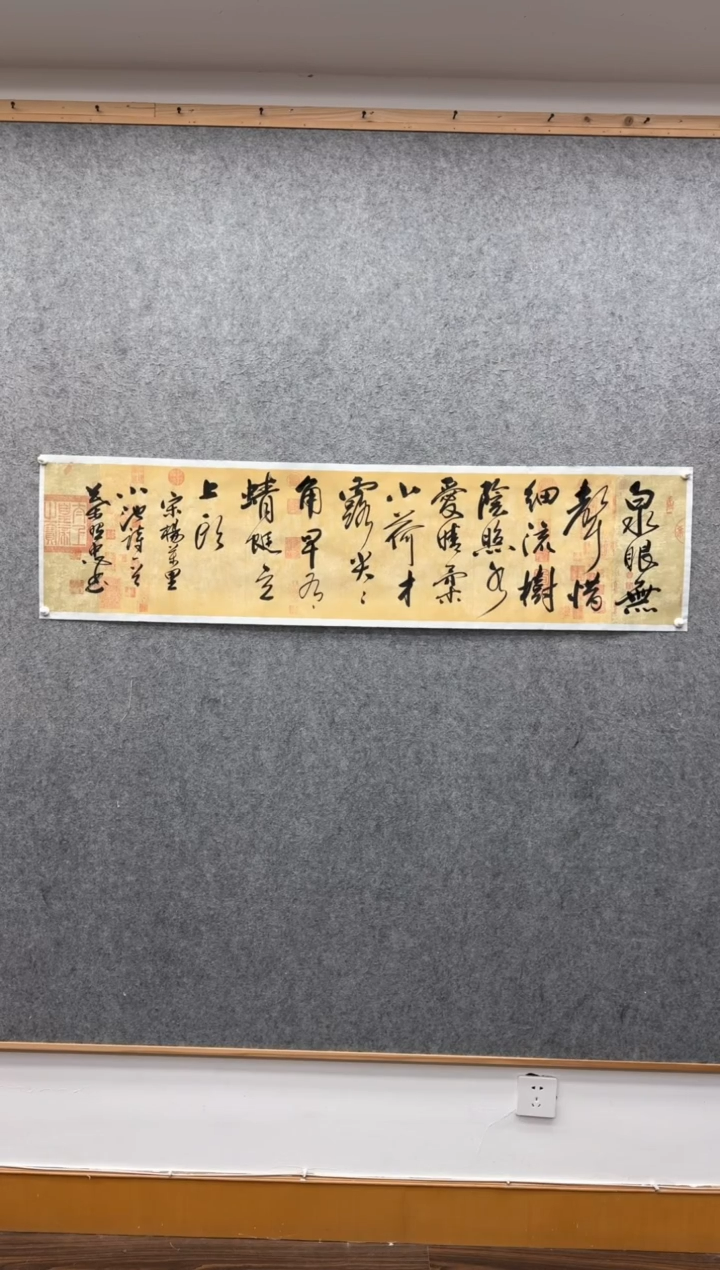 泉眼無
聲惜
細流樹
陰照水
愛晴柔
小荷才
露尖〻
角早有
蜻蜓立
上頭
宋楊萬里
小池詩一首